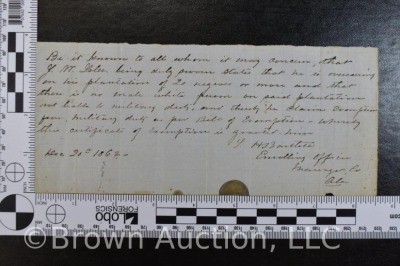 Be it known to all whom it may concern, that
J. W. being duly sworn states that he is
on his plantation of 20 negroes or more and that
there is no male white person on said plantation
not liable to military duty, and thereby he claims exemption
from military duty as per bill of Exemption - whereby
this certificate of exemption is granted him
Dec 20th 1862 -
Enrolling Officer
Co
Ala
Lobo
FORENSICS
© Brown Auction, LLC